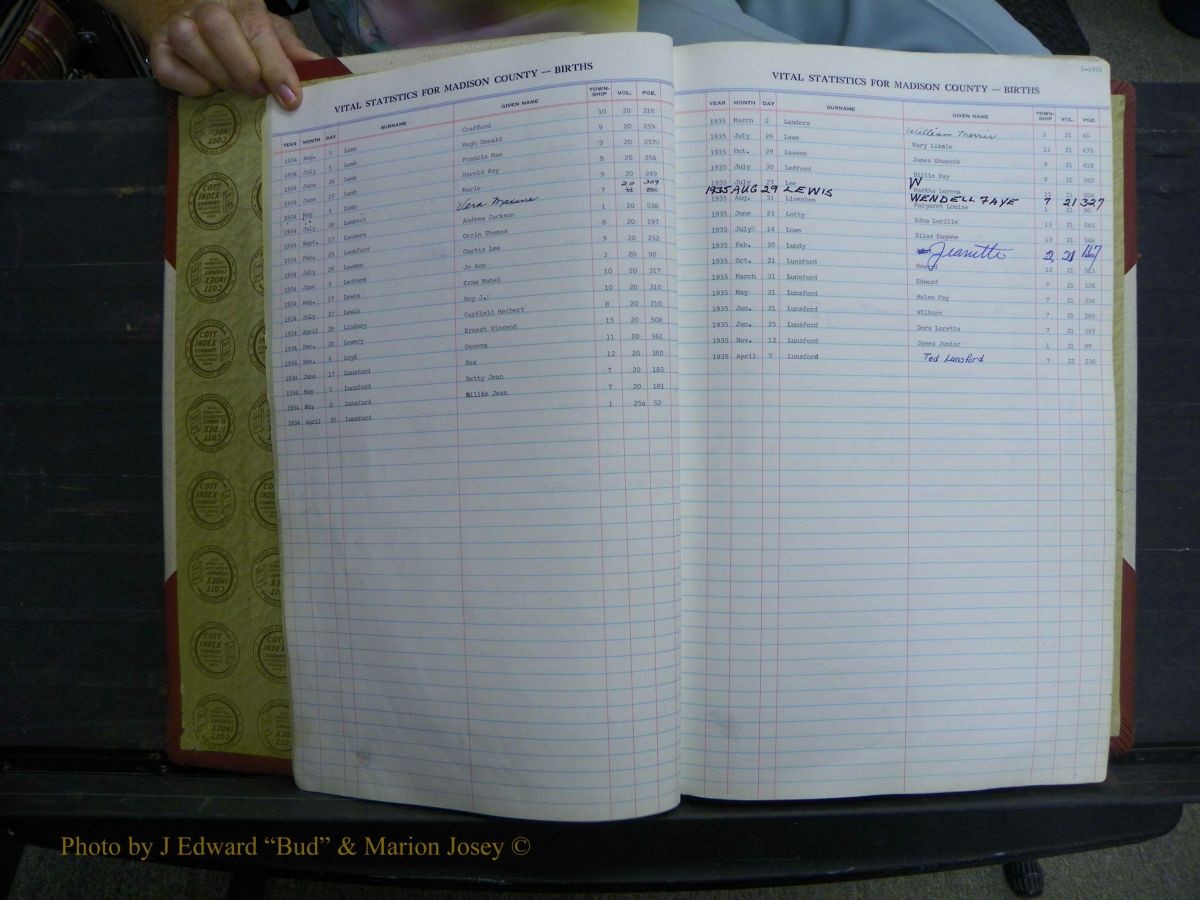 VITAL STATISTICS FOR MADISON COUNTY — BIRTHS
YEAR MONTH DAY SURNAME GIVEN NAME TOWN-SHIP VOL. PGE.
1934 Aug. 7 Lamb Crafford 10 20 316
1934 July 5 Lamb Hugh Donald 9 20 259
1934 June 26 Lamb Francis Mae 9 20
1934 June 15 Lamb Harold Ray 9 20 254
1934 May 9 Lamb Marie 9 20 249
1934 July 28 Lambert Vera Maxene 7 20 309
1934 Sept. 17 Lanners Andrew Jackson 1 20 538
1934 Feb. 25 Lankford Orrin Thomas 8 20 197
1934 July 20 Lawson Curtis Lee 9 20 252
1934 June 3 Ledford Jo Ann 3 20 90
1934 Aug. 17 Lewis Erma Mabel 10 20 317
1934 July 27 Lewis Roy J. 10 20 310
1934 April 29 Lindsey Garfield Herbert 8 20 210
1934 Dec. 20 Lowery Ernest Vincent 15 20 508
1934 Nov. 5 Loyd Geneva 11 20 361
1934 June 17 Lunsford Rex 12 20 380
1934 May 3 Lunsford Betty Jean 7 20 182
1934 May 3 Lunsford Billie Jean 7 20 181
1934 April 25 Lunsford 1 25a 52
L-1935
VITAL STATISTICS FOR MADISON COUNTY — BIRTHS
YEAR MONTH DAY SURNAME GIVEN NAME TOWN-SHIP VOL. PGE.
1935 March 2 Landers William Morris 1 21 45
1935 July 26 Laws Mary Lizzie 11 21 475
1935 Oct. 29 Lawson James Edwards 9 21 419
1935 July 30 Ledford Billie Ray 8 21 362
1935 July 27 Lee Martha Lorena
W
1935 AUG 29 LEWIS WENDELL FAYE 7 21 327
Aug. 31 Lisenbee Margaret Louise 1 21
1935 June 23 Lotty Edna Lucille 13 21 545
1935 July 14 Lowe Silas Eugene 13 21 546
1935 Feb. 20 Lundy Jeanette 2 21 147
1935 Oct. 21 Lunsford Howard 12 21 513
1935 March 31 Lunsford Edward 7 21 338
1935 May 21 Lunsford Helen Fay 7 21 334
1935 Jan. 21 Lunsford Wilburn 7 21 295
1935 Jan. 25 Lunsford Dora Loretta 7 21 293
1935 Nov. 12 Lunsford James Junior 1 21 99
1935 April 7 Lunsford Ted Lunsford 7 22 230
COTT INDEX COMPANY
Photo by J Edward “Bud” & Marion Josey ©